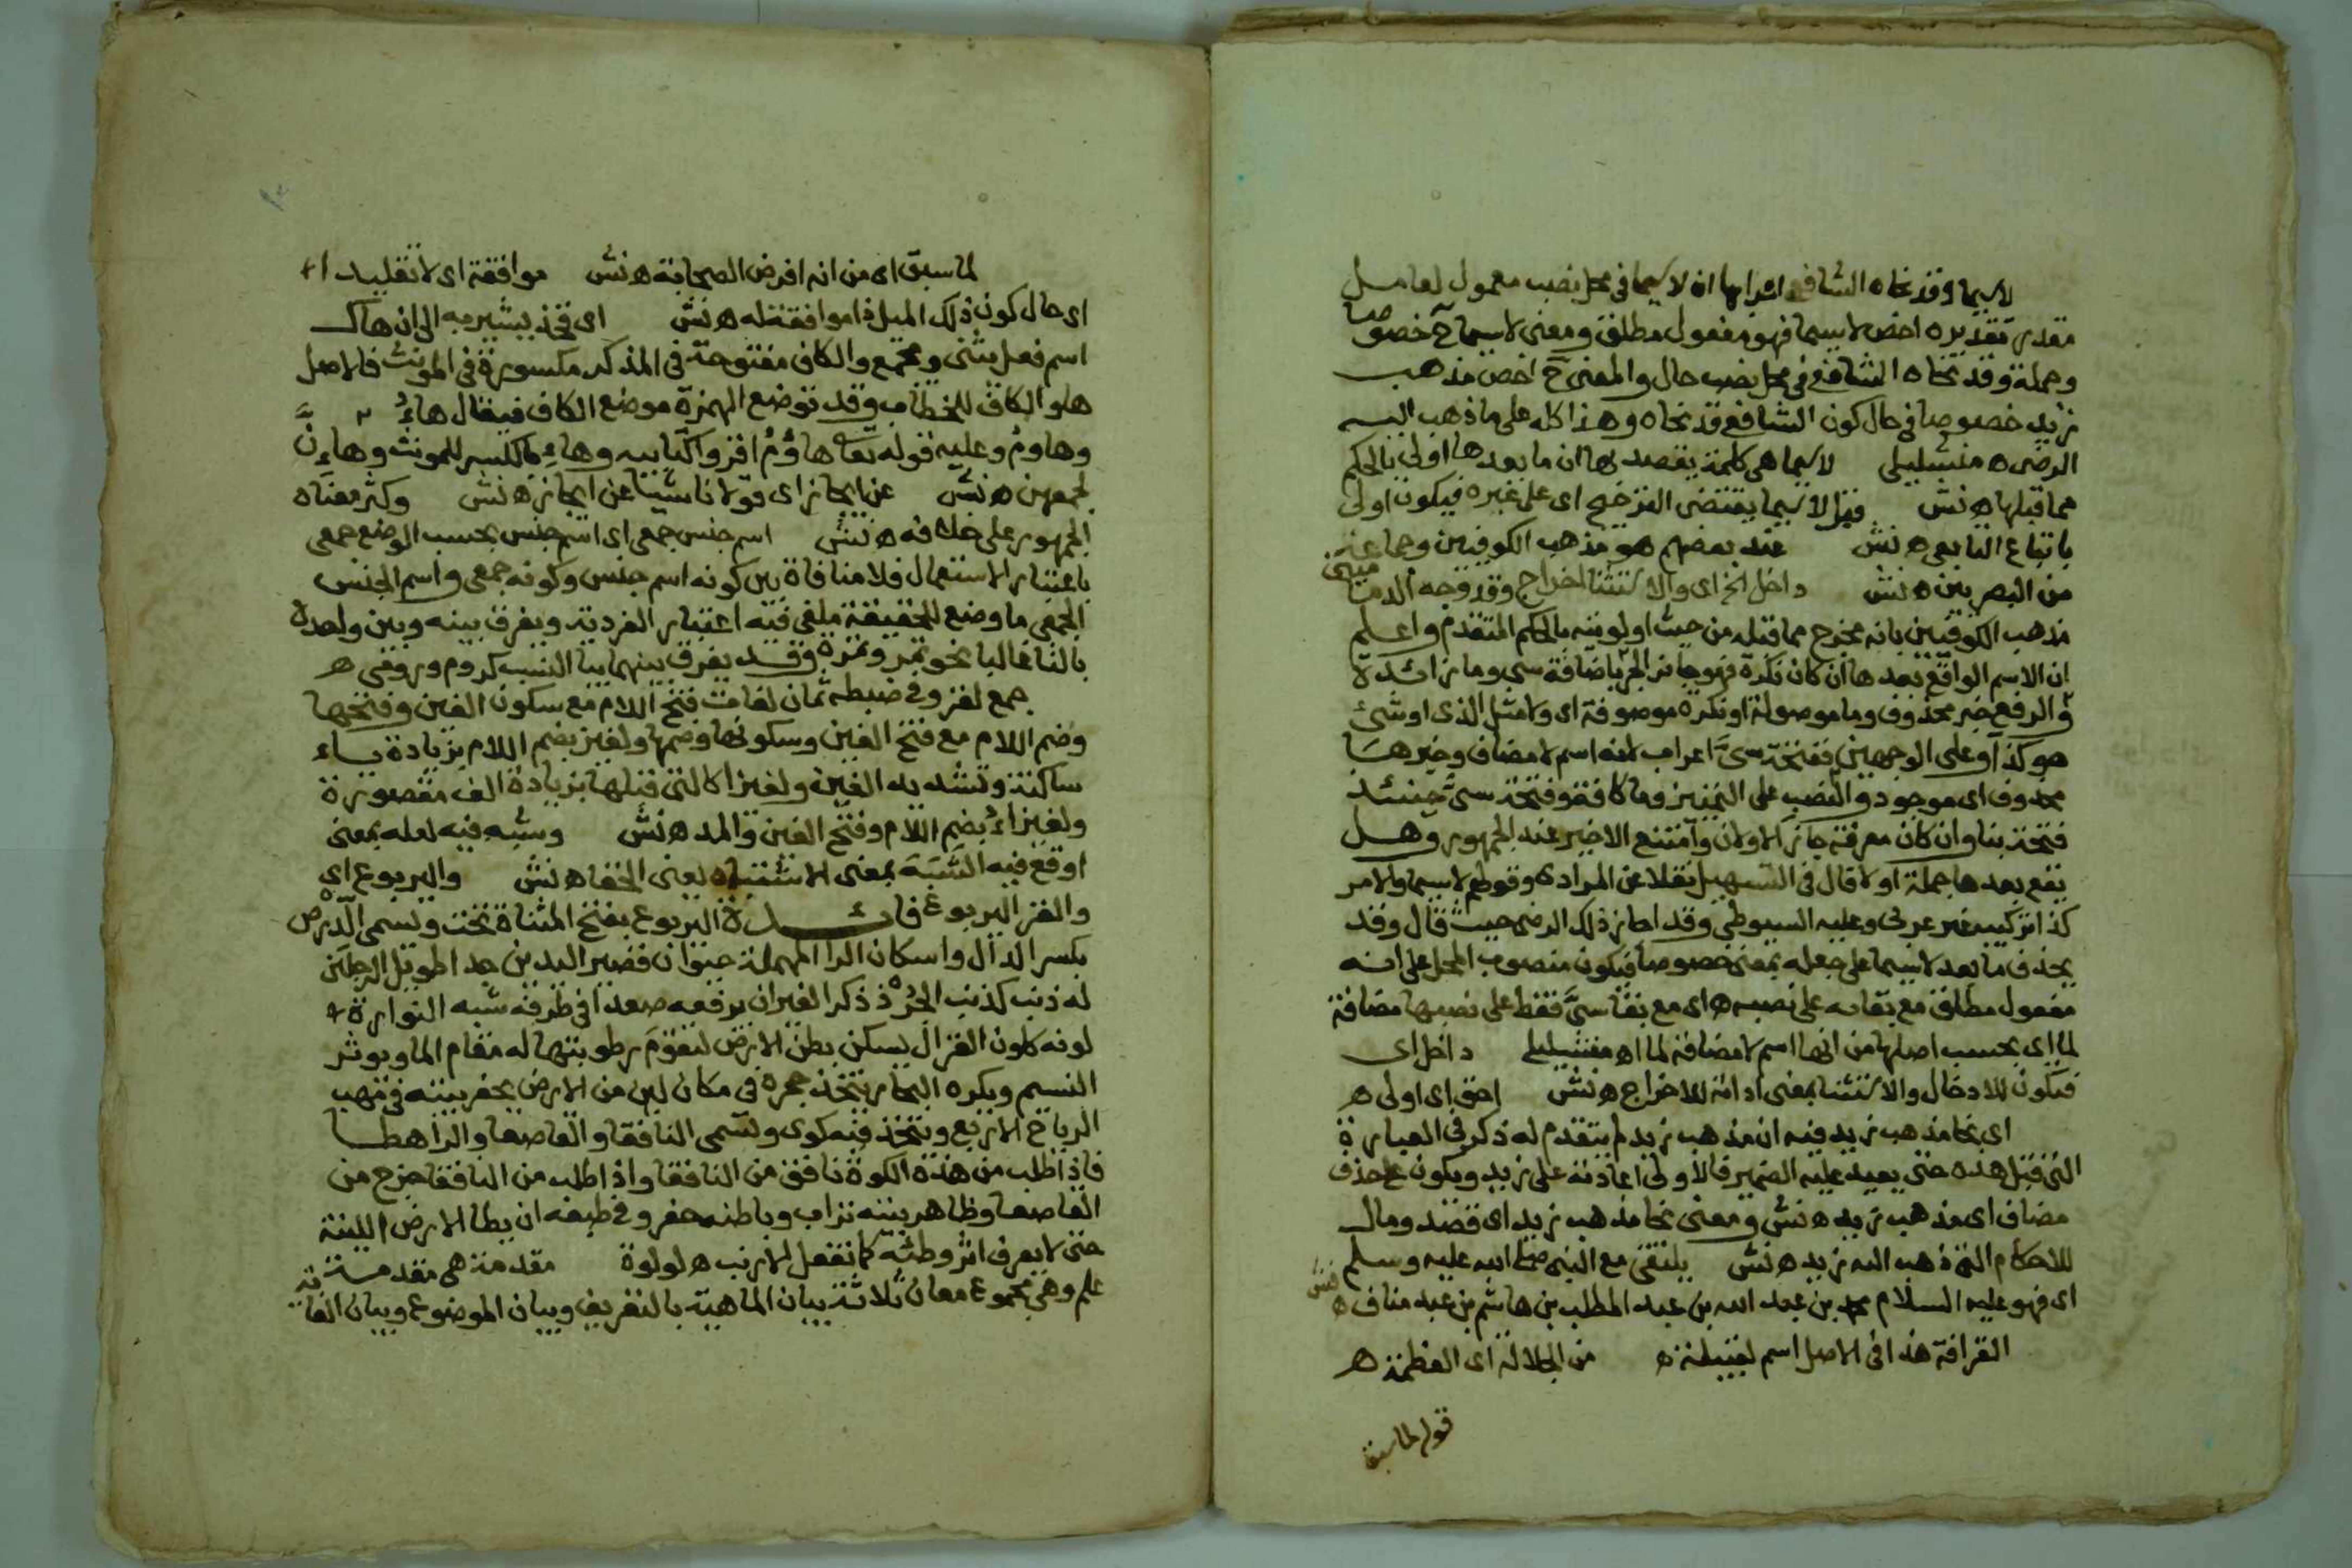 لاسيما وقد نحاه الشافعي اعرابها ان لاسيما في محل نصب معمول لعامل
مقدر تقديره اخص لاسيما فهو مفعول مطلق ومعنى لاسيما ح خصوصا
وجملة وقد نحاه الشافعي في محل نصب حال والمعنى ح اخص مذهب
زيد خصوصا في حال كون الشافعي قد نحاه وهذا كله على ما ذهب اليه
الرضي ه منشليلي لاسيما هي كلمة يقصد بها ان ما بعدها اولى بالحكم
مما قبلها ه نش فنزل لاسيما يقتضى الترجيح اى على غيره فيكون اولى
باتباع التابعى ه نش عند بعضهم هو مذهب الكوفيين وجماعة
من البصريين ه نش داخل الخ اى والاستثنا اخراج وقد وجه الدماميني
مذهب الكوفيين بانه مخرج مما قبله من حيث اولويته بالحكم المتقدم واعلم
ان الاسم الواقع بعدها ان كان نكرة فهو جائز الجر باضافة سي وما زائدة
والرفع خبر محذوف وما موصولة او نكرة موصوفة اى ولا مثل الذى او شئ
هو كذا وعلى الوجهين ففتحة سيّ اعراب لانه اسم لا مضاف وخبرها
محذوف اى موجود والنصب على التمييز وما كافة وفتحة سيّ حينئذ
فتحة بنا وان كان معرفة جاز الاولان وامتنع الاخير عند الجمهور وهل
يقع بعدها جملة اولا قال في التسهيل نقلا عن المرادى وقولهم لاسيما والامر
كذا تركيب غير عربى وعليه السيوطي وقد اجاز ذلك الرضى حيث قال وقد
يحذف ما بعد لاسيما على جعله بمعنى خصوصا فيكون منصوب المحل على انه
مفعول مطلق مع بقائه على نصبه ه اى مع بقا سيّ فقط على نصبها مضافة
لما اى بحسب اصلها من انها اسم لا مضافة لما اه منشليلي داخل اى
فيكون للادخال والاستثنا بمعنى اداته للاخراج ه نش احق اى اولى ه
اى نحا مذهب زيد فيه ان مذهب زيد لم يتقدم له ذكر في العبارة
التى قبل هذه حتى يعيد عليه الضمير فالاولى اعادته على زيد ويكون على حذف
مضاف اى مذهب زيد ه نش ومعنى نحا مذهب زيد اى قصد ومال
للاحكام التى ذهب اليه زيد ه نش يلتقى مع النبى صلى الله عليه وسلم
اى فهو عليه السلام محمد بن عبد الله بن عبد المطلب بن هاشم بن عبد مناف ه نش
القرافة هذا في الاصل اسم لقبيلة ه من الجلالة اى العظمة ه
قوله لما سبق
لما سبق اى من انه افرض الصحابة ه نش موافقة اى لا تقليدا
اى حال كون ذلك الميل ذا موافقة له ه نش اى فخذ يشير به الى ان هاك
اسم فعل يثنى ويجمع والكاف مفتوحة في المذكر مكسورة في المونث فالاصل
ها والكاف للخطاب وقد توضع الهمزة موضع الكاف فيقال هاءُ
وهاوم وعليه قوله تعا هاؤُمُ اقرؤا كتابيه وهاءِ بالكسر للمونث وهاءنّ
لجمعهن ه نش عن ايجاز اى قولا ناشيا عن ايجاز ه نش وكثر معناه
الجمهور على خلافه ه نش اسم جنس جمعى اى اسم جنس بحسب الوضع جمعى
باعتبار الاستعمال فلا منافاة بين كونه اسم جنس وكونه جمعى واسم الجنس
الجمعى ما وضع للحقيقة ملغى فيه اعتبار الفردية ويفرق بينه وبين واحده
بالتا غالبا نحو تمر وتمرة وقد يفرق بينهما بيا النسب كروم ورومى ه
جمع لغز وفى ضبطه ثمان لغات فتح اللام مع سكون الغين وفتحها
وضم اللام مع فتح الغين وسكونها وضمها ولغيز بضم اللام بزيادة ياء
ساكنة وتشديد الغين ولغيزا كالتى قبلها بزيادة الف مقصورة
ولغيزاءُ بضم اللام وفتح الغين والمد ه نش وشبه فيه لعله بمعنى
اوقع فيه الشَبَهَ بمعنى الاشتباه يعنى الخفا ه نش واليربوع اى
والغز اليربوع فائدة اليربوع بفتح المثناة تحت ويسمى الدرص
بكسر الدال واسكان الرا المهملة حيوان قصير اليدين جدا طويل الرجلين
له ذنب كذنب الجُرَذ ذكر الفيران يرفعه صعدا في طرفه شبه النوارة
لونه كلون الغزال يسكن بطن الارض لتقوم رطوبتها له مقام الما ويوثر
النسيم ويكره البحار يتخذ جحره في مكان لين من الارض يحفر بيته في مهب
الرياح الاربع ويتخذ فيه كوى وتسمى النافقا والقاصعا والراهطا
فاذا طلب من هذه الكوة نافق من النافقا واذا طلب من النافقا خرج من
القاصعا وظاهر بيته تراب وباطنه حفر وفى طبعه ان يطا الارض اللينة
حتى لا يعرف اثر وطئه كما تفعل الارنب ه لولوة مقدمة هى مقدمة
علم وهى مجموع معان ثلاثة بيان الماهية بالتعريف وبيان الموضوع وبيان الغاية